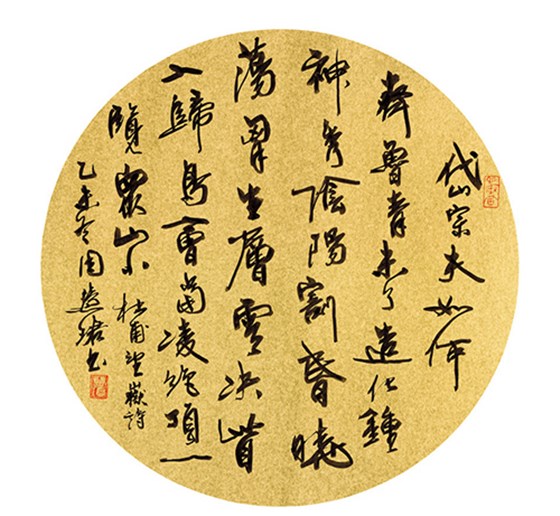 岱宗夫如何
齊魯青未了造化鍾
神秀陰陽割昏曉
蕩胷生層雲決眥
入歸鳥會當凌絕頂一
覽眾山小 杜甫望嶽詩
乙未冬周書